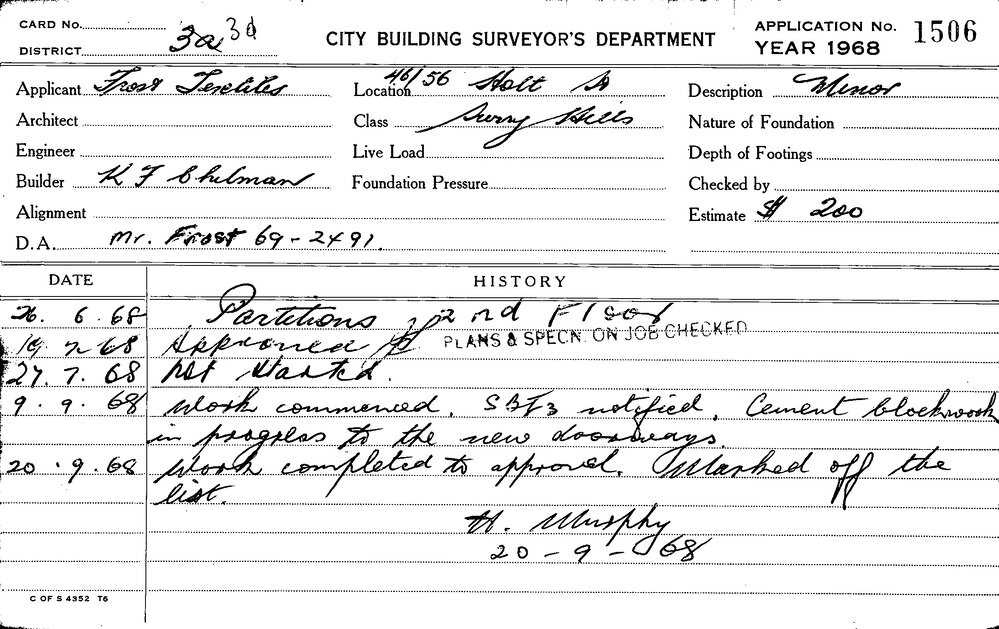 CARD No.
DISTRICT 3a 3d
CITY BUILDING SURVEYOR'S DEPARTMENT
APPLICATION No. 1506
YEAR 1968
Applicant Frost Textiles
Location 46/56 Holt St
Description Minor
Architect
Class Surry Hills
Nature of Foundation
Engineer
Live Load
Depth of Footings
Builder K F Chilman
Foundation Pressure
Checked by
Alignment
Estimate $ 200
D.A. Mr. Frost 69-2491.
DATE HISTORY
26. 6. 68 Partitions 2nd Floor
19 7 68 Approved PLANS & SPECN. ON JOB CHECKED
27. 7. 68 Not Started.
9. 9. 68 Work commenced. SBI3 notified. Cement blockwork
in progress to the new doorways.
20. 9. 68 Work completed to approval. Marked off the
list.
H. Murphy
20-9-68
C OF S 4352 T6